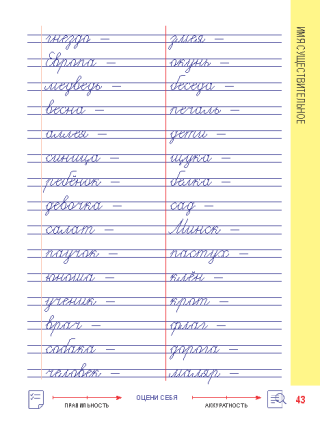 ИМЯ СУЩЕСТВИТЕЛЬНОЕ
гнездо — змея —
Европа — окунь —
медведь — беседа —
весна — печаль —
аллея — дети —
синица — щука —
ребёнок — белка —
девочка — сад —
салат — Минск —
паучок — пастух —
юноша — клён —
ученик — крот —
врач — флаг —
собака — дорога —
человек — маляр —
ПРАВИЛЬНОСТЬ ОЦЕНИ СЕБЯ АККУРАТНОСТЬ 43